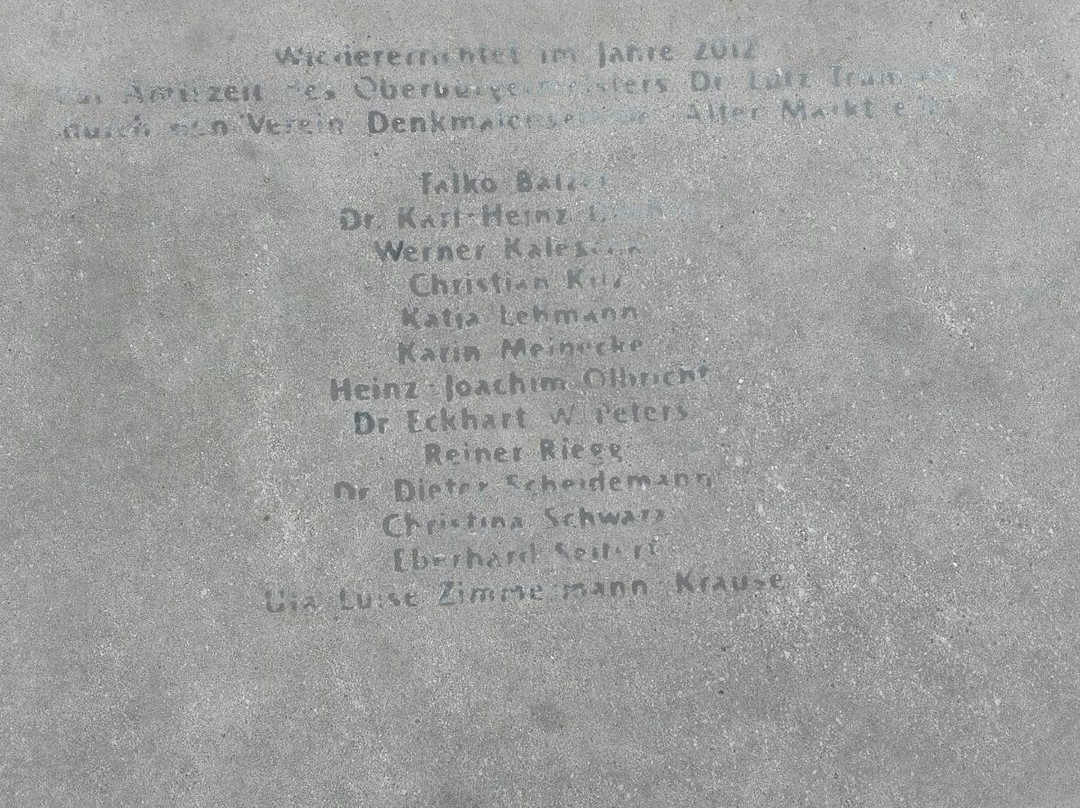 Wiedererrichtet im Jahre 2012
zur Amtszeit des Oberbürgermeisters Dr. Lutz Trümper
durch den Verein Denkmalensemble Alter Markt e.V.
Falko Balzer
Dr. Karl-Heinz
Werner
Christian Kilz
Katja Lehmann
Karin Meinecke
Heinz-Joachim Olbricht
Dr. Eckhart W. Peters
Reiner Riegg
Dr. Dieter Scheidemann
Christina Schwarz
Eberhard Seifert
Luise Zimmermann-Krause